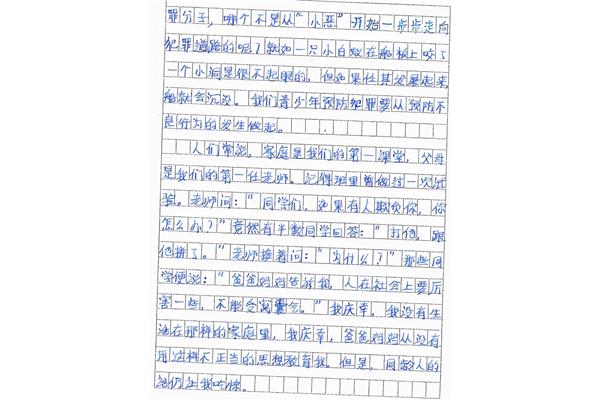 罪分子，哪个不是从“小恶”开始一步步走向
犯罪道路的呢？就如一只小白蚁在船板上咬了
一个小洞是很不起眼的，但如果任其发展起来，
船就会沉没。我们青少年预防犯罪要从预防不
良行为的发生做起。
人们常说，家庭是我们的第一课堂，父母
是我们的第一任老师。记得班里曾做过一次试
验。老师问：“同学们，如果有人欺负你，你
怎么办？”竟然有半数同学回答：“打他，跟
他拼了。”老师接着问：“为什么？”那些同
学便说：“爸爸妈妈告诉我，人在社会上要厉
害一些，不能受窝囊气。”我庆幸，我没有生
活在那样的家庭里，我庆幸，爸爸妈妈从没有
用这样不正当的思想教育我。但是，同龄人的
话仍让我吃惊。